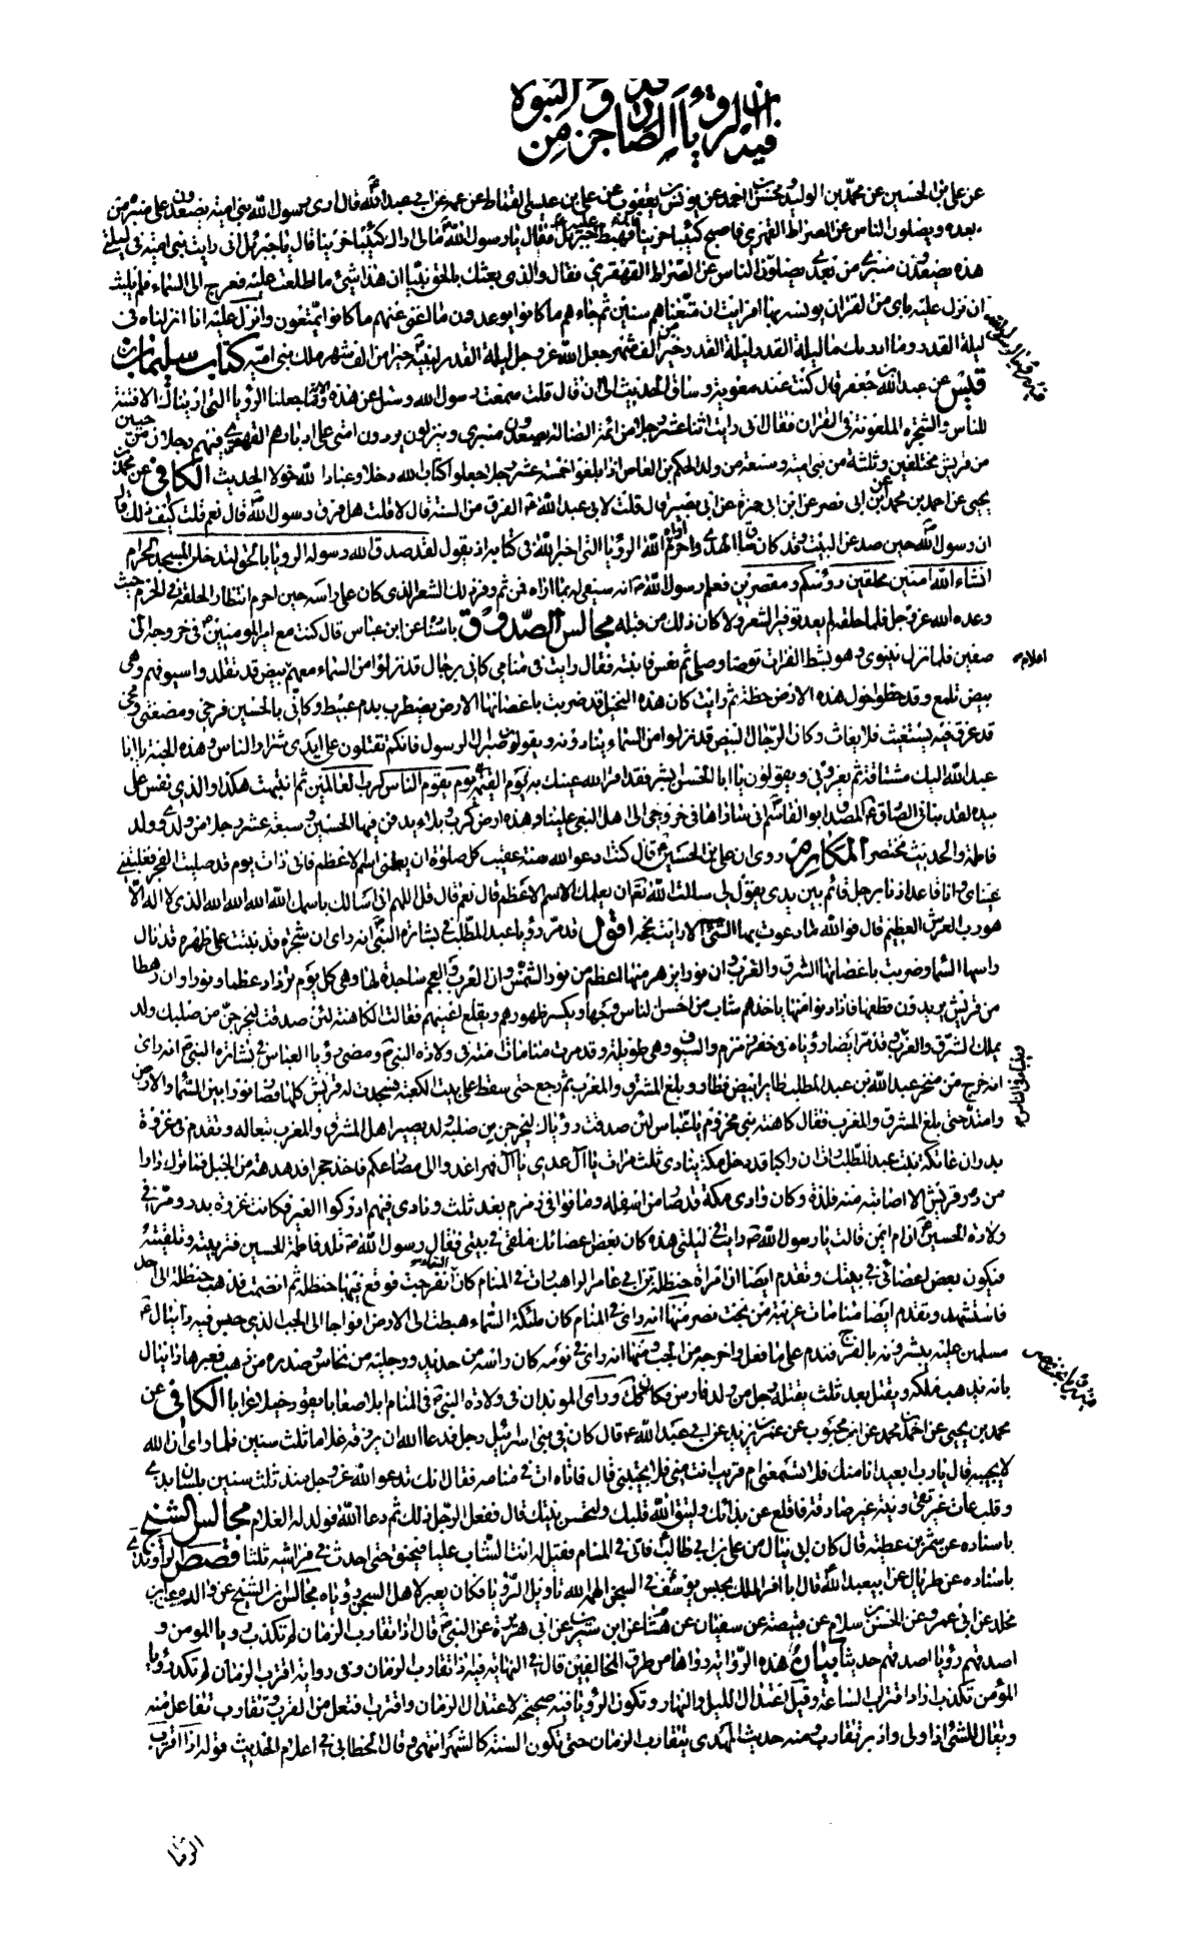 عن علي بن الحسين عن محمد بن الوليد ومحسن بن احمد عن يونس بن يعقوب عن علي بن عيسى القماط عن عمه عن ابي عبد الله قال ارى رسول الله بني امية يصعدون على منبره من
بعده ويضلون الناس عن الصراط القهقرى فاصبح كئيبا حزينا فهبط عليه جبرئيل فقال يا رسول الله مالي اراك كئيبا حزينا قال يا جبرئيل اني رايت بني امية في ليلتي
هذه يصعدون منبري من بعدي يضلون الناس عن الصراط القهقرى فقال والذي بعثك بالحق نبيا ان هذا شئ ما اطلعت عليه فعرج الى السماء فلم يلبث
ان نزل عليه باي من القران يونسه بها افرايت ان متعناهم سنين ثم جاءهم ما كانوا يوعدون ما اغنى عنهم ما كانوا يمتعون وانزل عليه انا انزلناه في
ليلة القدر وما ادريك ما ليلة القدر ليلة القدر خير من الف شهر جعل الله عز وجل ليلة القدر لنبيه خيرا من الف شهر ملك بني امية كتاب سليم بن
قيس عن عبد الله بن جعفر قال كنت عند معوية وساق الحديث الى ان قال قلت سمعت رسول الله وسئل عن هذه الاية وما جعلنا الرؤيا التي اريناك الا فتنة
للناس والشجرة الملعونة في القران فقال اني رايت اثنا عشر رجلا من ائمة الضلالة يصعدون منبري وينزلون يردون امتي على ادبارهم القهقرى فيهم رجلان من حيين
من قريش مختلفين وثلثة من بني امية وسبعة من ولد الحكم بن العاص اذا بلغوا خمسة عشر رجلا جعلوا كتاب الله دخلا وعباد الله خولا الحديث الكافي عن محمد بن
يحيى عن احمد بن محمد عن ابن ابي نصر عن ابن ابي حمزة عن ابي بصير قال قلت لابي عبد الله ع الفرق من السنة قال لا قلت هل فرق رسول الله قال نعم قلت كيف ذلك قال
ان رسول الله حين صد عن البيت وقد كان ساق الهدي واحرم اراه الله الرؤيا التي اخبر الله في كتابه اذ يقول لقد صدق الله رسوله الرويا بالحق لتدخلن المسجد الحرام
انشاء الله امنين محلقين رؤسكم ومقصرين فعلم رسول الله ص انه سيفي له بما اراه فمن ثم وفر ذلك الشعر الذي كان على راسه حين احرم انتظارا لحلقه في الحرم حيث
وعده الله عز وجل فلما حلقه لم يعد توفير الشعر ولا كان ذلك من قبله مجالس الصدوق باسناده عن ابن عباس قال كنت مع امير المومنين في خروجه الى
صفين فلما نزل نينوى وهو بشط الفرات توضا وصلى ثم نعس فانتبه فقال رايت في منامي كاني برجال قد نزلوا من السماء معهم بيض قد تقلدوا سيوفهم وهي
اعلام
بيض تلمع وقد خطوا حول هذه الارض خطة ثم رايت كان هذه النخيل قد ضربت باغصانها الارض يضطرب بدم عبيط وكاني بالحسين فرخي ومضغتي ومخي
قد غرق فيه يستغيث فلا يغاث وكان الرجال البيض قد نزلوا من السماء ينادونه ويقولون صبرا ال الرسول فانكم تقتلون على ايدي شرار الناس وهذه الجنة يا ابا
عبد الله اليك مشتاقة ثم يعزوني ويقولون يا ابا الحسن ابشر فقد اقر الله عينك به يوم القيمة يوم يقوم الناس لرب العالمين ثم انتبهت هكذا والذي نفس علي
بيده لقد نباني الصادق المصدق ابو القاسم اني ساراها في خروجي الى اهل البغي علينا وهذه ارض كرب وبلاء يدفن فيها الحسين وسبعة عشر رجلا من ولدي وولد
فاطمة والحديث مختصر المكارم روي ان علي بن الحسين ع قال كنت ادعو الله سنة عقيب كل صلوة ان يعلمني اسم الاعظم فاني ذات يوم قد صليت الفجر فغلبتني
عيناي وانا قاعد اذا برجل قائم بين يدي يقول لي سالت الله تعالى ان يعلمك الاسم الاعظم قال نعم قال قل اللهم اني اسالك باسمك الله الله الله الله الله الذي لا اله الا
هو رب العرش العظيم قال فوالله ما دعوت بها لشئ الا رايت نجحه اقول قد مر رؤيا عبد المطلب في بشارة النبي انه راى ان شجرة قد نبتت على ظهره قد نال
راسها السماء وضربت باغصانها الشرق والغرب وان نورا يزهر منها اعظم من نور الشمس وان العرب والعجم ساجدة لها وهي كل يوم تزداد عظما ونورا وان رهطا
من قريش يريدون قطعها فاذا دنوا منها ياخذهم شاب من احسن الناس وجها ويكسر ظهورهم ويقلع اعينهم فقالت الكاهنة لئن صدقت ليخرجن من صلبك ولد
يملك الشرق والغرب وقد مر ايضا رؤياه في حفر زمزم والسيوف وهي طويلة وقد مرت منامات منه في ولادة النبي ص ومضى رؤيا العباس في بشارة النبي ص انه راى
انه خرج من منخر عبد الله بن عبد المطلب طاير ابيض فطار وبلغ المشرق والمغرب ثم رجع حتى سقط على بيت الكعبة فسجدت له قريش كلها فصار نورا بين السماء والارض
وامتد حتى بلغ المشرق والمغرب فقال كاهنة بني مخزوم يا عباس لئن صدقت رؤياك ليخرجن من صلبه ولد يصير اهل المشرق والمغرب تبعا له وتقدم في غزوة
بدر ان عاتكة بنت عبد المطلب رات ان راكبا قد دخل مكة ينادي ثلث مرات يا ال عدي يا ال فهر اغدوا الى مصارعكم فاخذ حجرا فدهدهه من الجبل فما ترك دارا
من دور قريش الا اصابته منه فلذة وكان وادي مكة قد سال من اسفله دما فوافى ضمضم بعد ثلث ونادى فيهم ادركوا العير فكانت غزوة بدر ومر في
ولادة الحسين ان ام ايمن قالت يا رسول الله رايت في ليلتي هذه كان بعض اعضائك ملقى في بيتي فقال رسول الله ص تلد فاطمة الحسين فتربيته وتلفينه
فيكون بعض اعضائي في بيتك وتقدم ايضا ان امراة حنظلة بن ابي عامر الراهب رات في المنام كان السماء انفرجت فوقع فيها حنظلة ثم انضمت فذهب حنظلة الى احد
فاستشهد وتقدم ايضا منامات غريبة من بخت نصر منها انه راى في المنام كان ملئكة السماء هبطت الى الارض افواجا الى الجب الذي حبس فيه دانيال ع
مسلمين عليه يبشرونه بالفرج فندم على ما فعل واخرجه من الجب ومنها انه راى في نومه كان راسه من حديد ورجليه من نحاس وصدره من ذهب فعبرها دانيال
بانه يذهب ملكه ويقتل بعد ثلث يقتله رجل من ولد فارس فكان كذلك وراى الموبدان في ولادة النبي ص في المنام ابلا صعابا يقود خيلا عرابا الكافي عن
محمد بن يحيى عن احمد بن محمد عن ابن محبوب عن عمر بن يزيد عن ابي عبد الله ع قال كان في بني اسرائيل رجل فدعا الله ان يرزقه غلاما ثلث سنين فلما راى ان الله
لا يجيبه قال يا رب ابعيد انا منك فلا تسمعني ام قريب انت مني فلا تجيبني قال فاتاه ات في منامه فقال انك تدعو الله عز وجل منذ ثلث سنين بلسان بذي
وقلب عات غير تقي ونية غير صادقة فاقلع عن بذائك وليتق الله قلبك ولتحسن نيتك قال ففعل الرجل ذلك ثم دعا الله فولد له الغلام مجالس الشيخ
باسناده عن شمر بن عطية قال كان ابي ينال من علي بن ابي طالب فاتي في المنام فقيل له انت الساب عليا فخنق حتى احدث في فراشه ثلثا قصص الراوندي
باسناده عن طربال عن ابي عبد الله قال لما امر الملك بحبس يوسف في السجن الهمه الله تاويل الرؤيا فكان يعبر لاهل السجن رؤياهم مجالس ابن الشيخ عن والده عن ابن
مخلد عن ابي عمرو عن الحسن بن سلام عن قبيصة عن سفيان عن هشام عن ابن سيرين عن ابي هريرة عن النبي ص قال اذا تقارب الزمان لم تكذب رويا المومن و
اصدقهم رؤيا اصدقهم حديثا بيان هذه الرواية رواها من طرق المخالفين قال في النهاية فيه اذا تقارب الزمان وفي رواية اقترب الزمان لم تكد رؤيا
المؤمن تكذب اراد اقتراب الساعة وقيل اعتدال الليل والنهار وتكون الرؤيا فيه صحيحة لاعتدال الزمان واقترب افتعل من القرب وتقارب تفاعل منه
ويقال للشئ اذا ولى وادبر تقارب ومنه حديث المهدي يتقارب الزمان حتى تكون السنة كالشهر انتهى وقال الخطابي في اعلام الحديث قوله اذا اقترب